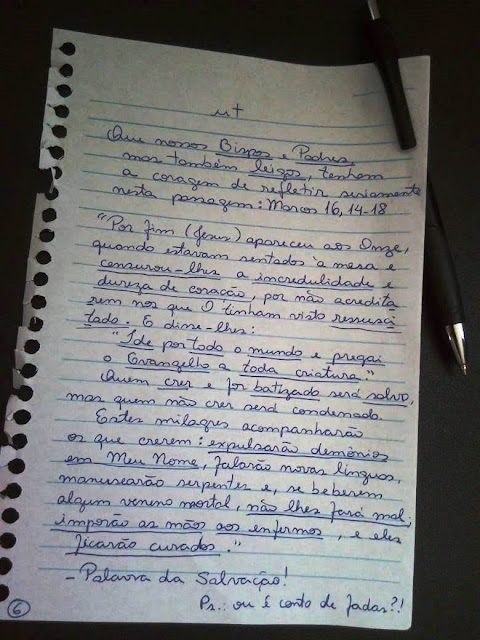 Que nossos Bispos e Padres,
mas também leigos, tenham
a coragem de refletir seriamente
nesta passagem: Marcos 16, 14-18
"Por fim (Jesus) apareceu aos Onze,
quando estavam sentados à mesa e
censurou-lhes a incredulidade e
dureza de coração, por não acredita
rem nos que O tinham visto ressusci
tado. E disse-lhes:
"Ide por todo o mundo e pregai
o Evangelho a toda criatura."
Quem crer e for batizado será salvo,
mas quem não crer será condenado.
Estes milagres acompanharão
os que crerem: expulsarão demônios
em Meu Nome, falarão novas línguas,
manusearão serpentes e, se beberem
algum veneno mortal, não lhes fará mal;
imporão as mãos aos enfermos, e eles
ficarão curados."
- Palavra da Salvação!
Ps.: ou é conto de fadas?!
6